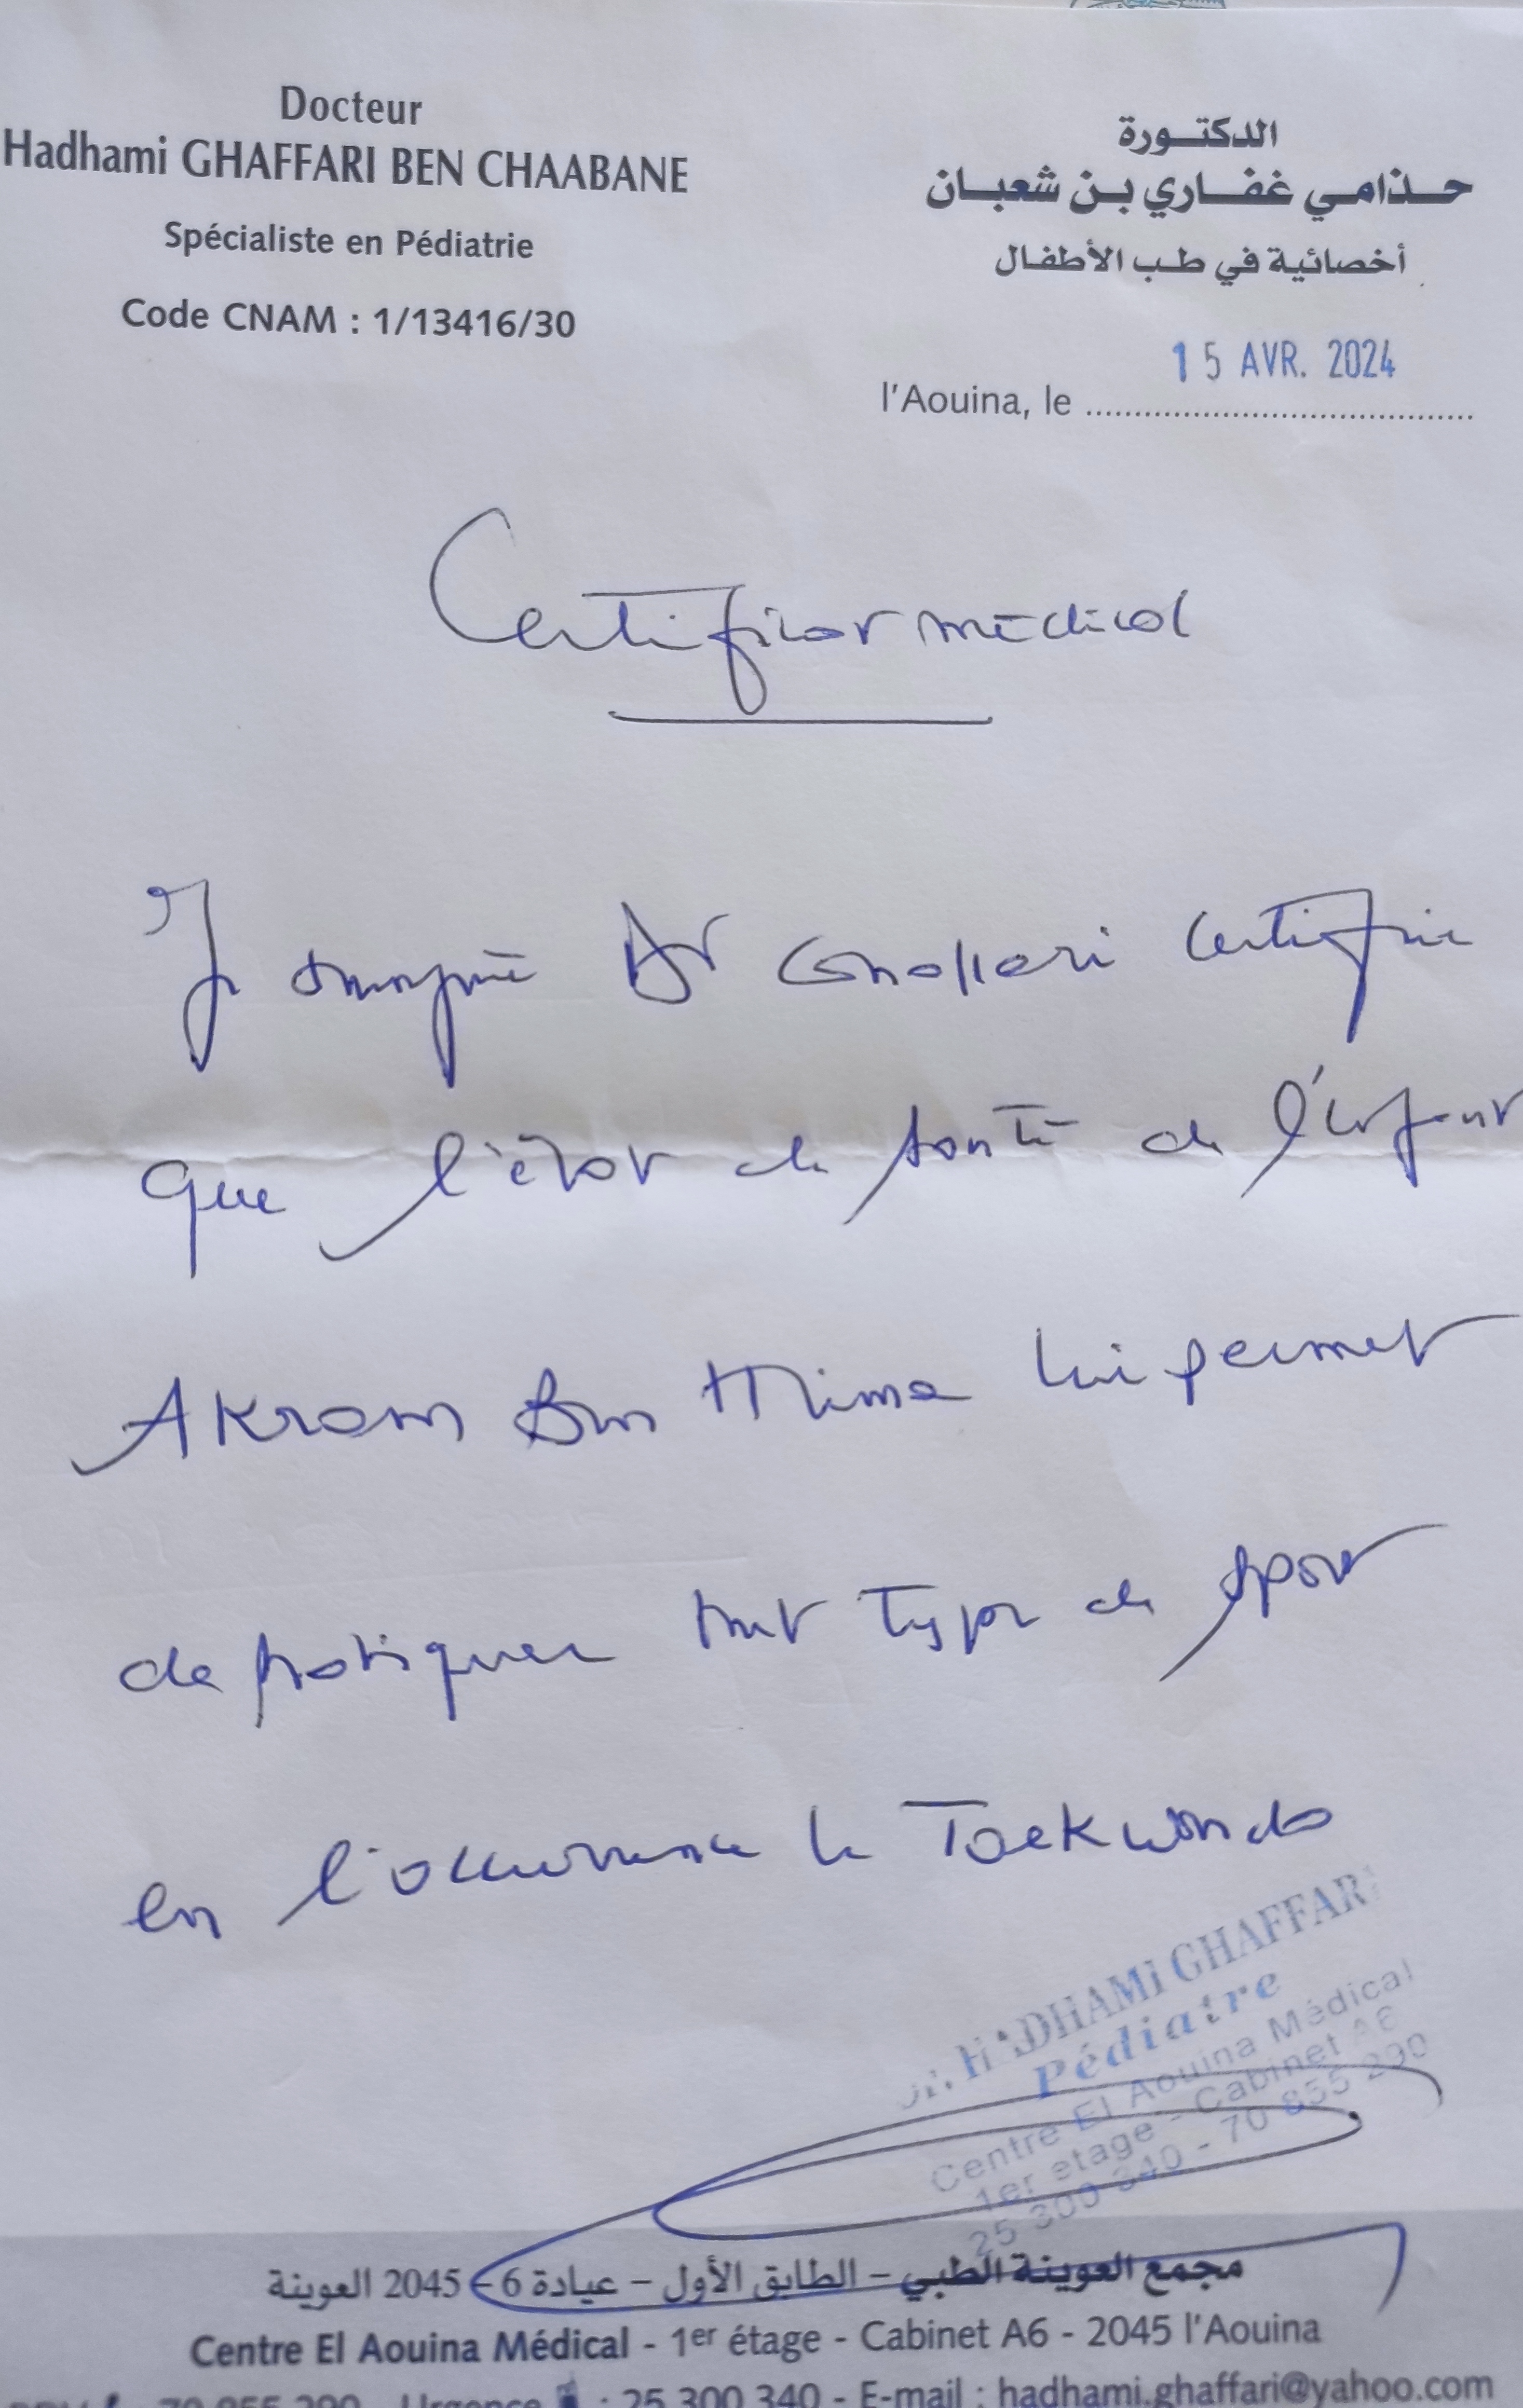 Docteur
Hadhami GHAFFARI BEN CHAABANE
Spécialiste en Pédiatrie
Code CNAM : 1/13416/30
الدكتورة
حذامي غفاري بن شعبان
أخصائية في طب الأطفال
15 AVR. 2024
l'Aouina, le
Certificat médical
Je soussigné Dr Ghaffari certifie
que l'état de santé de l'enfant
Akram Ben Mima lui permet
de pratiquer tout type de sport
en l'occurrence le Taekwondo
Dr. HADHAMI GHAFFARI
Pédiatre
Centre El Aouina Médical
1er etage - Cabinet A6
25 300 340 - 70 855 290
مجمع العوينة الطبي – الطابق الأول – عيادة 6 – 2045 العوينة
Centre El Aouina Médical - 1er étage - Cabinet A6 - 2045 l'Aouina
70 855 290 Urgence : 25 300 340 - E-mail : hadhami.ghaffari@yahoo.com